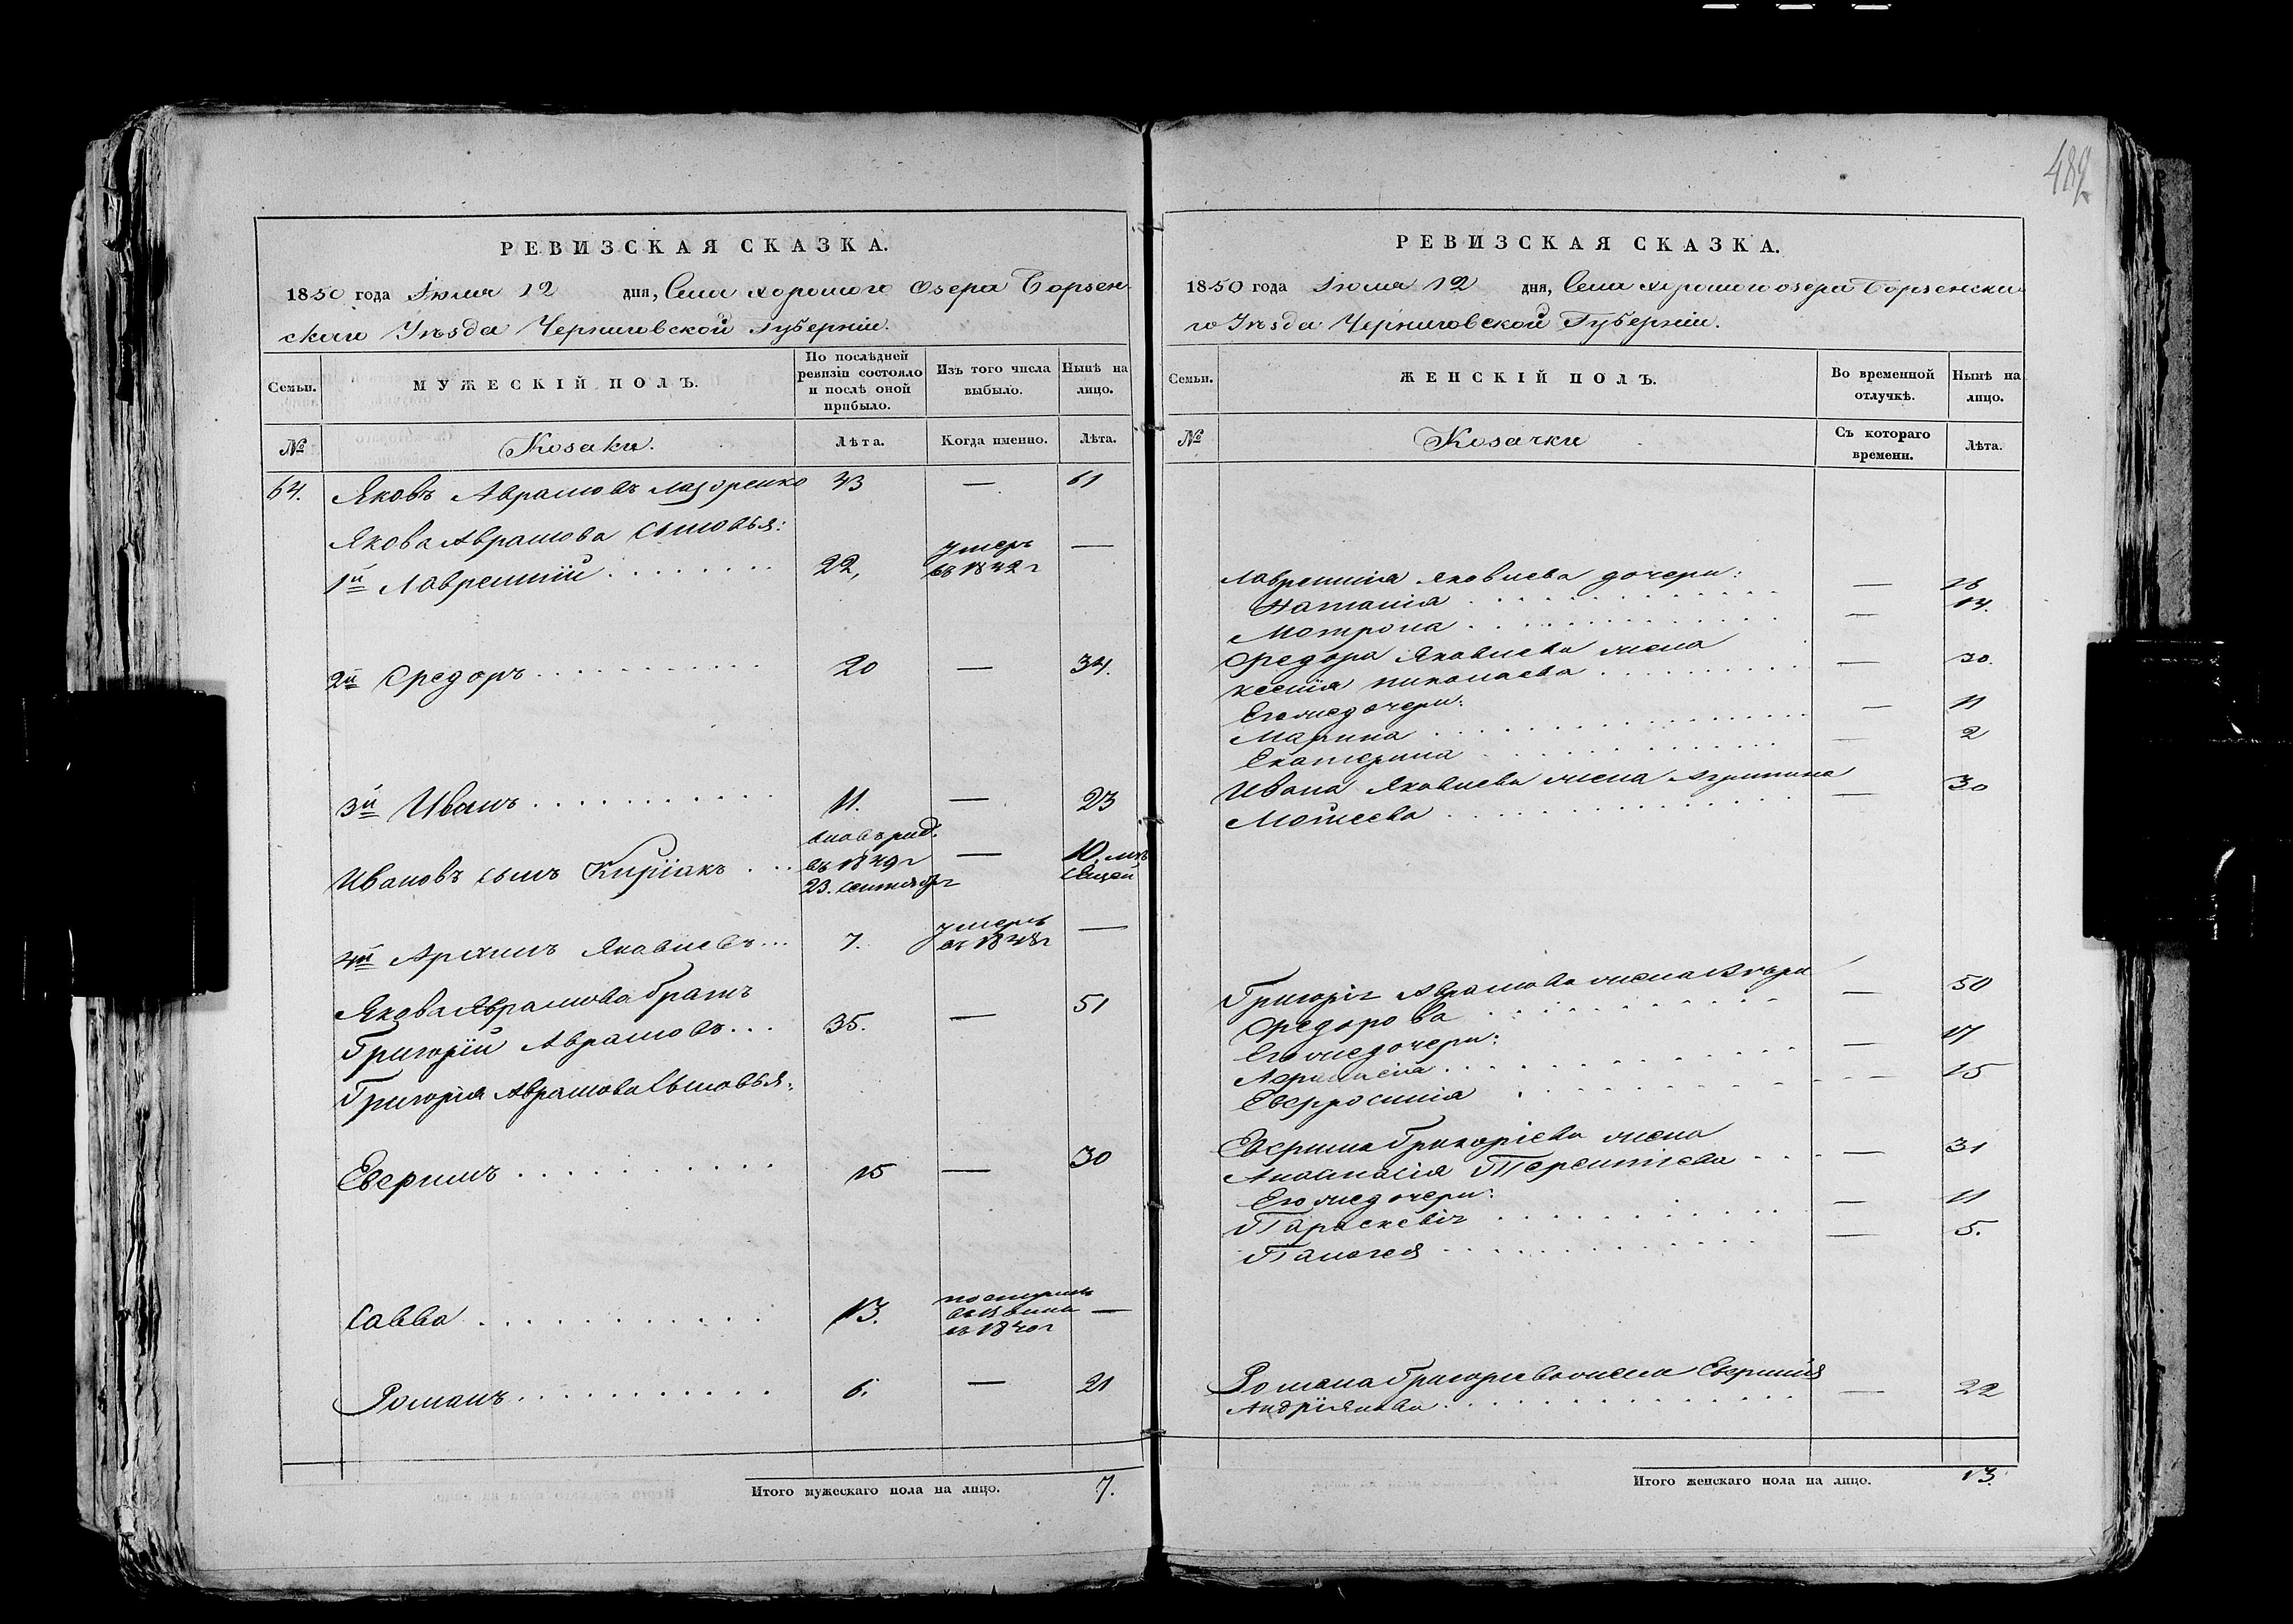 489
РЕВИЗСКАЯ СКАЗКА.
1850 года Июля 12 дня, Села Хорошого Озера Борзен
скаго Уѣзда Черниговской Губерніи.
Семьи.
МУЖЕСКІЙ ПОЛЪ.
По послѣдней ревизіи состояло и послѣ оной прибыло.
Изъ того числа выбыло.
Нынѣ на лицо.
№
Козаки.
Лѣта.
Когда именно.
Лѣта.
64. Яковъ Аврамовъ Лазоренко 43 — 61
Якова Аврамова Сыновья:
1й Лаврентій . . . . . . . . 22, умеръ въ 1842 г —
2й Федоръ . . . . . . . . . . 20 — 34.
3й Иванъ . . . . . . . . . . . 11. — 23
Ивановъ сынъ Киріакъ . . . вновь рod. въ 1849 г 23. Сентября — 10. мѣсяцей
4й Архипъ Яковлевъ... 7. умеръ въ 1848 г —
Якова Аврамова братъ
Григорій Аврамовъ . . . 35. — 51
Григорія Аврамова Сыновья:
Евфимъ . . . . . . . . . . . 15 — 30
Савва . . . . . . . . . . . . 13. въ 1840 г —
Романъ . . . . . . . . . . . 6. — 21
Итого мужескаго пола на лицо. 7.
РЕВИЗСКАЯ СКАЗКА.
1850 года Июля 12 дня, Села Хорошого озера Борзенска
го Уѣзда Черниговской Губерніи.
Семьи.
ЖЕНСКІЙ ПОЛЪ.
Во временной отлучкѣ.
Нынѣ на лицо.
№
Козачки
Съ котораго времени.
Лѣта.
Лаврентія Яковлева дочери:
Наталія . . . . . . . . . . . . — 18
Мотрона . . . . . . . . . . . . — 14.
Федора Яковлева жена
Ксенія Николаева . . . . . . . . — 30.
Его же дочери:
Марина . . . . . . . . . . . . . — 11
Екатерина . . . . . . . . . . . — 2
Ивана Яковлева жена Агрипина
Моисеева . . . . . . . . . . . . — 30
Григорія Аврамова жена
Федорова . . . . . . . . . . . . — 50
Его же дочери:
. . . . . . . . . . . . . — 17
Евфросинія . . . . . . . . . . — 15
Евфима Григоріева жена
Анастасія Терентіева . . . — 31
Его же дочери:
Параскевія . . . . . . . . . . . — 11
Палагея . . . . . . . . . . . . — 5.
Романа Григориева жена Евфимія
Андріянова . . . . . . . . . . . — 22
Итого женскаго пола на лицо. 13.